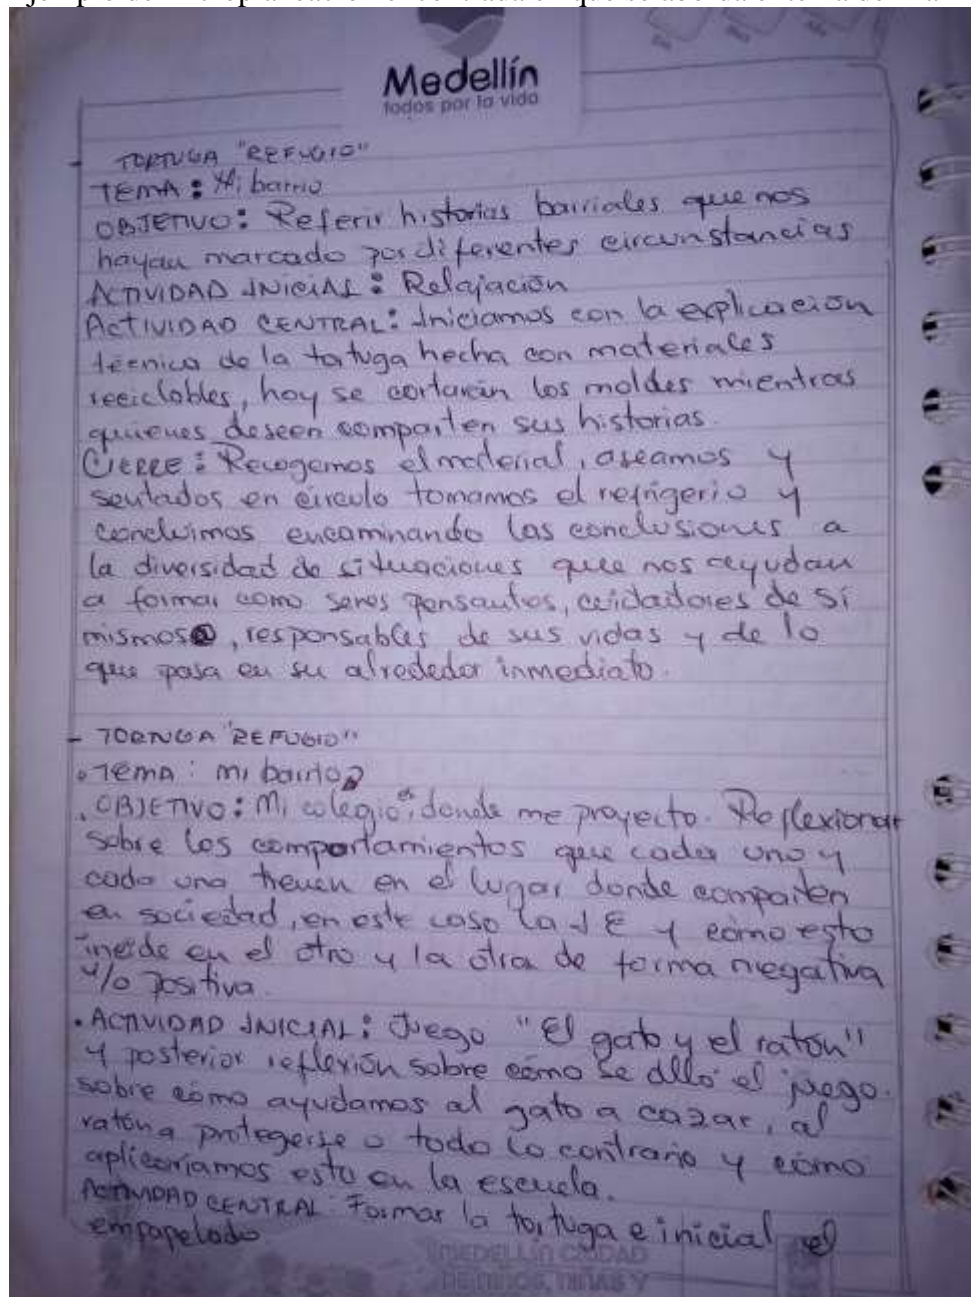 Medellín
todos por la vida
- TORTUGA "REFUGIO"
TEMA: Mi barrio
OBJETIVO: Referir historias barriales que nos
hayan marcado por diferentes circunstancias
ACTIVIDAD INICIAL: Relajación
ACTIVIDAD CENTRAL: Iniciamos con la explicación
técnica de la totuga hecha con materiales
reciclables, hoy se cortarán los moldes mientras
quienes deseen comparten sus historias.
CIERRE: Recogemos el material, aseamos y
sentados en círculo tomamos el refrigerio y
concluimos encaminando las conclusiones a
la diversidad de situaciones que nos ayudan
a formar como seres pensantes, cuidadores de sí
mismos, responsables de sus vidas y de lo
que pasa en su alrededor inmediato.
- TORTUGA "REFUGIO"
• Tema: mi barrio
. OBJETIVO: Mi colegio, donde me proyecto. Reflexionar
sobre los comportamientos que cada uno y
cada una tienen en el lugar donde comparten
en sociedad, en este caso la I E y cómo esto
incide en el otro y la otra de forma negativa
y/o positiva.
• ACTIVIDAD INICIAL: Juego "El gato y el ratón"
y posterior reflexión sobre cómo se dllo el juego.
sobre cómo ayudamos al gato a cazar, al
ratón a protegerse o todo lo contrario y cómo
aplicaríamos esto en la escuela.
ACTIVIDAD CENTRAL: Formar la tortuga e inicial el
empapelado
MEDELLÍN CIUDAD
DE NIÑOS, NIÑAS Y